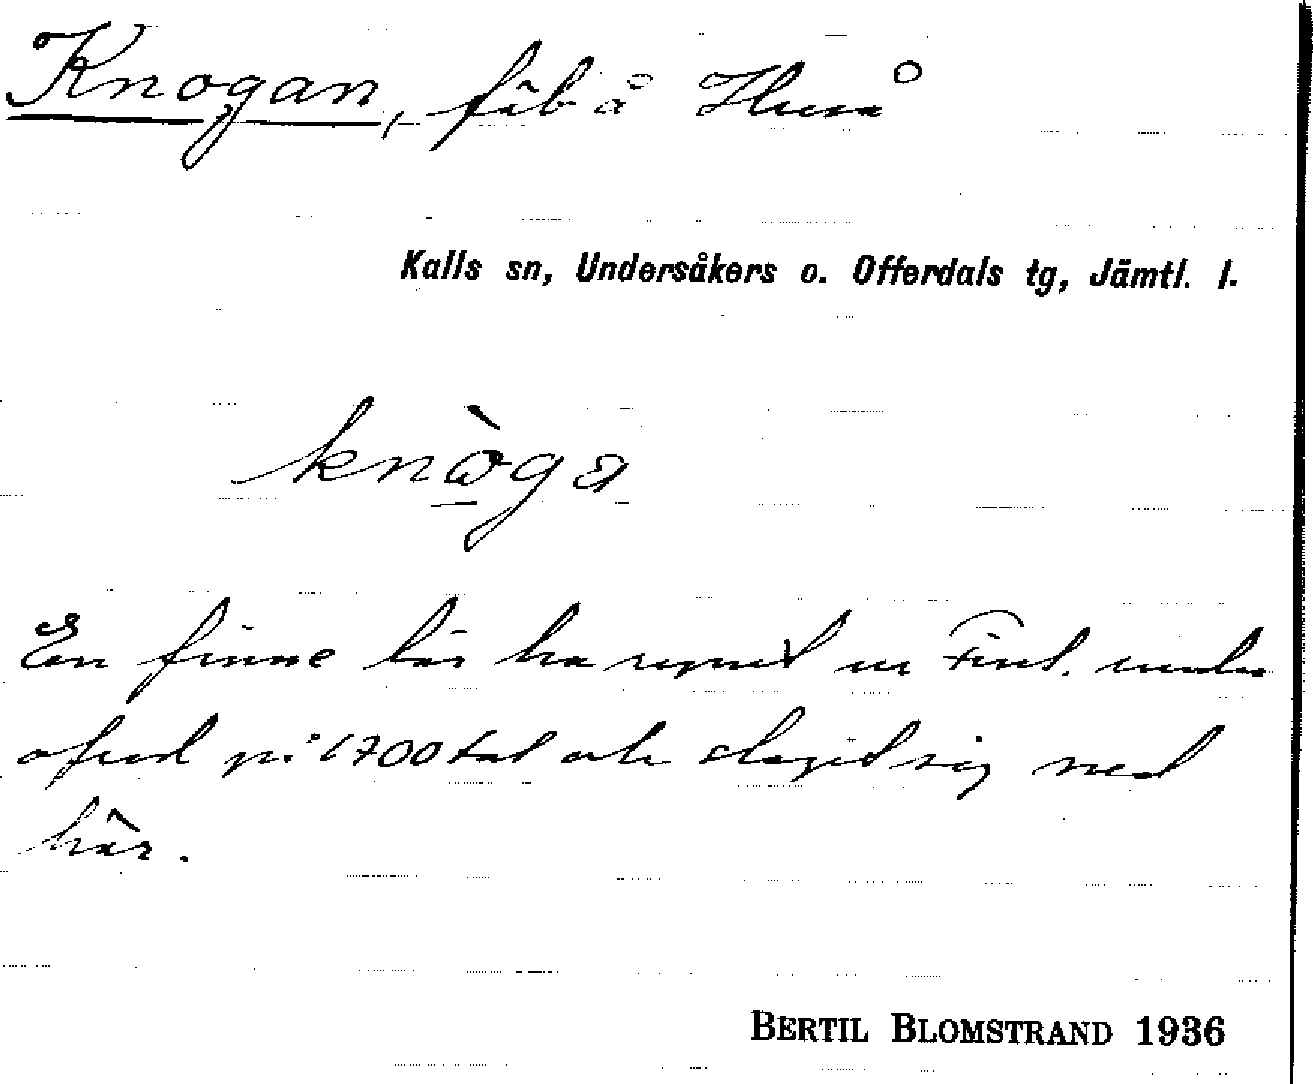 Knogan, fäb å Huså
Kalls sn, Undersåkers o. Offerdals tg, Jämtl. l.
knò̲ga
En finne lär ha rymt ur Finl. under
ofred på 1700 tal och slagit sig ned
här.
BERTIL BLOMSTRAND 1936